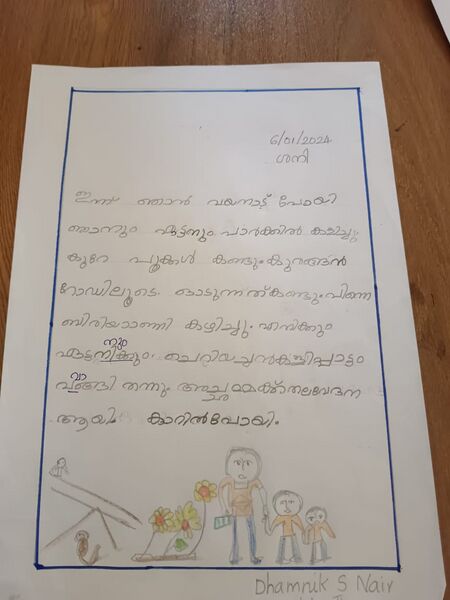 6/01/2024
ശനി
ഇന്ന് ഞാൻ വയനാട് പോയി
ഞാനും ഏട്ടനും പാർക്കിൽ കളിച്ചു.
കുറേ പൂക്കൾ കണ്ടു. കുറങ്ങൻ
റോഡിലൂടെ ഓടുന്നത് കണ്ടു. പിന്നെ
ബിരിയാണി കഴിച്ചു. എനിക്കും
ഏട്ടനിക്കും. ചെറിയച്ഛൻ കളിപ്പാട്ടം
നും
വാങ്ങി തന്നു. അച്ഛമ്മക്ക് തലവേദന
ആയി. കാറിൽപോയി.
Dhamnik S Nair